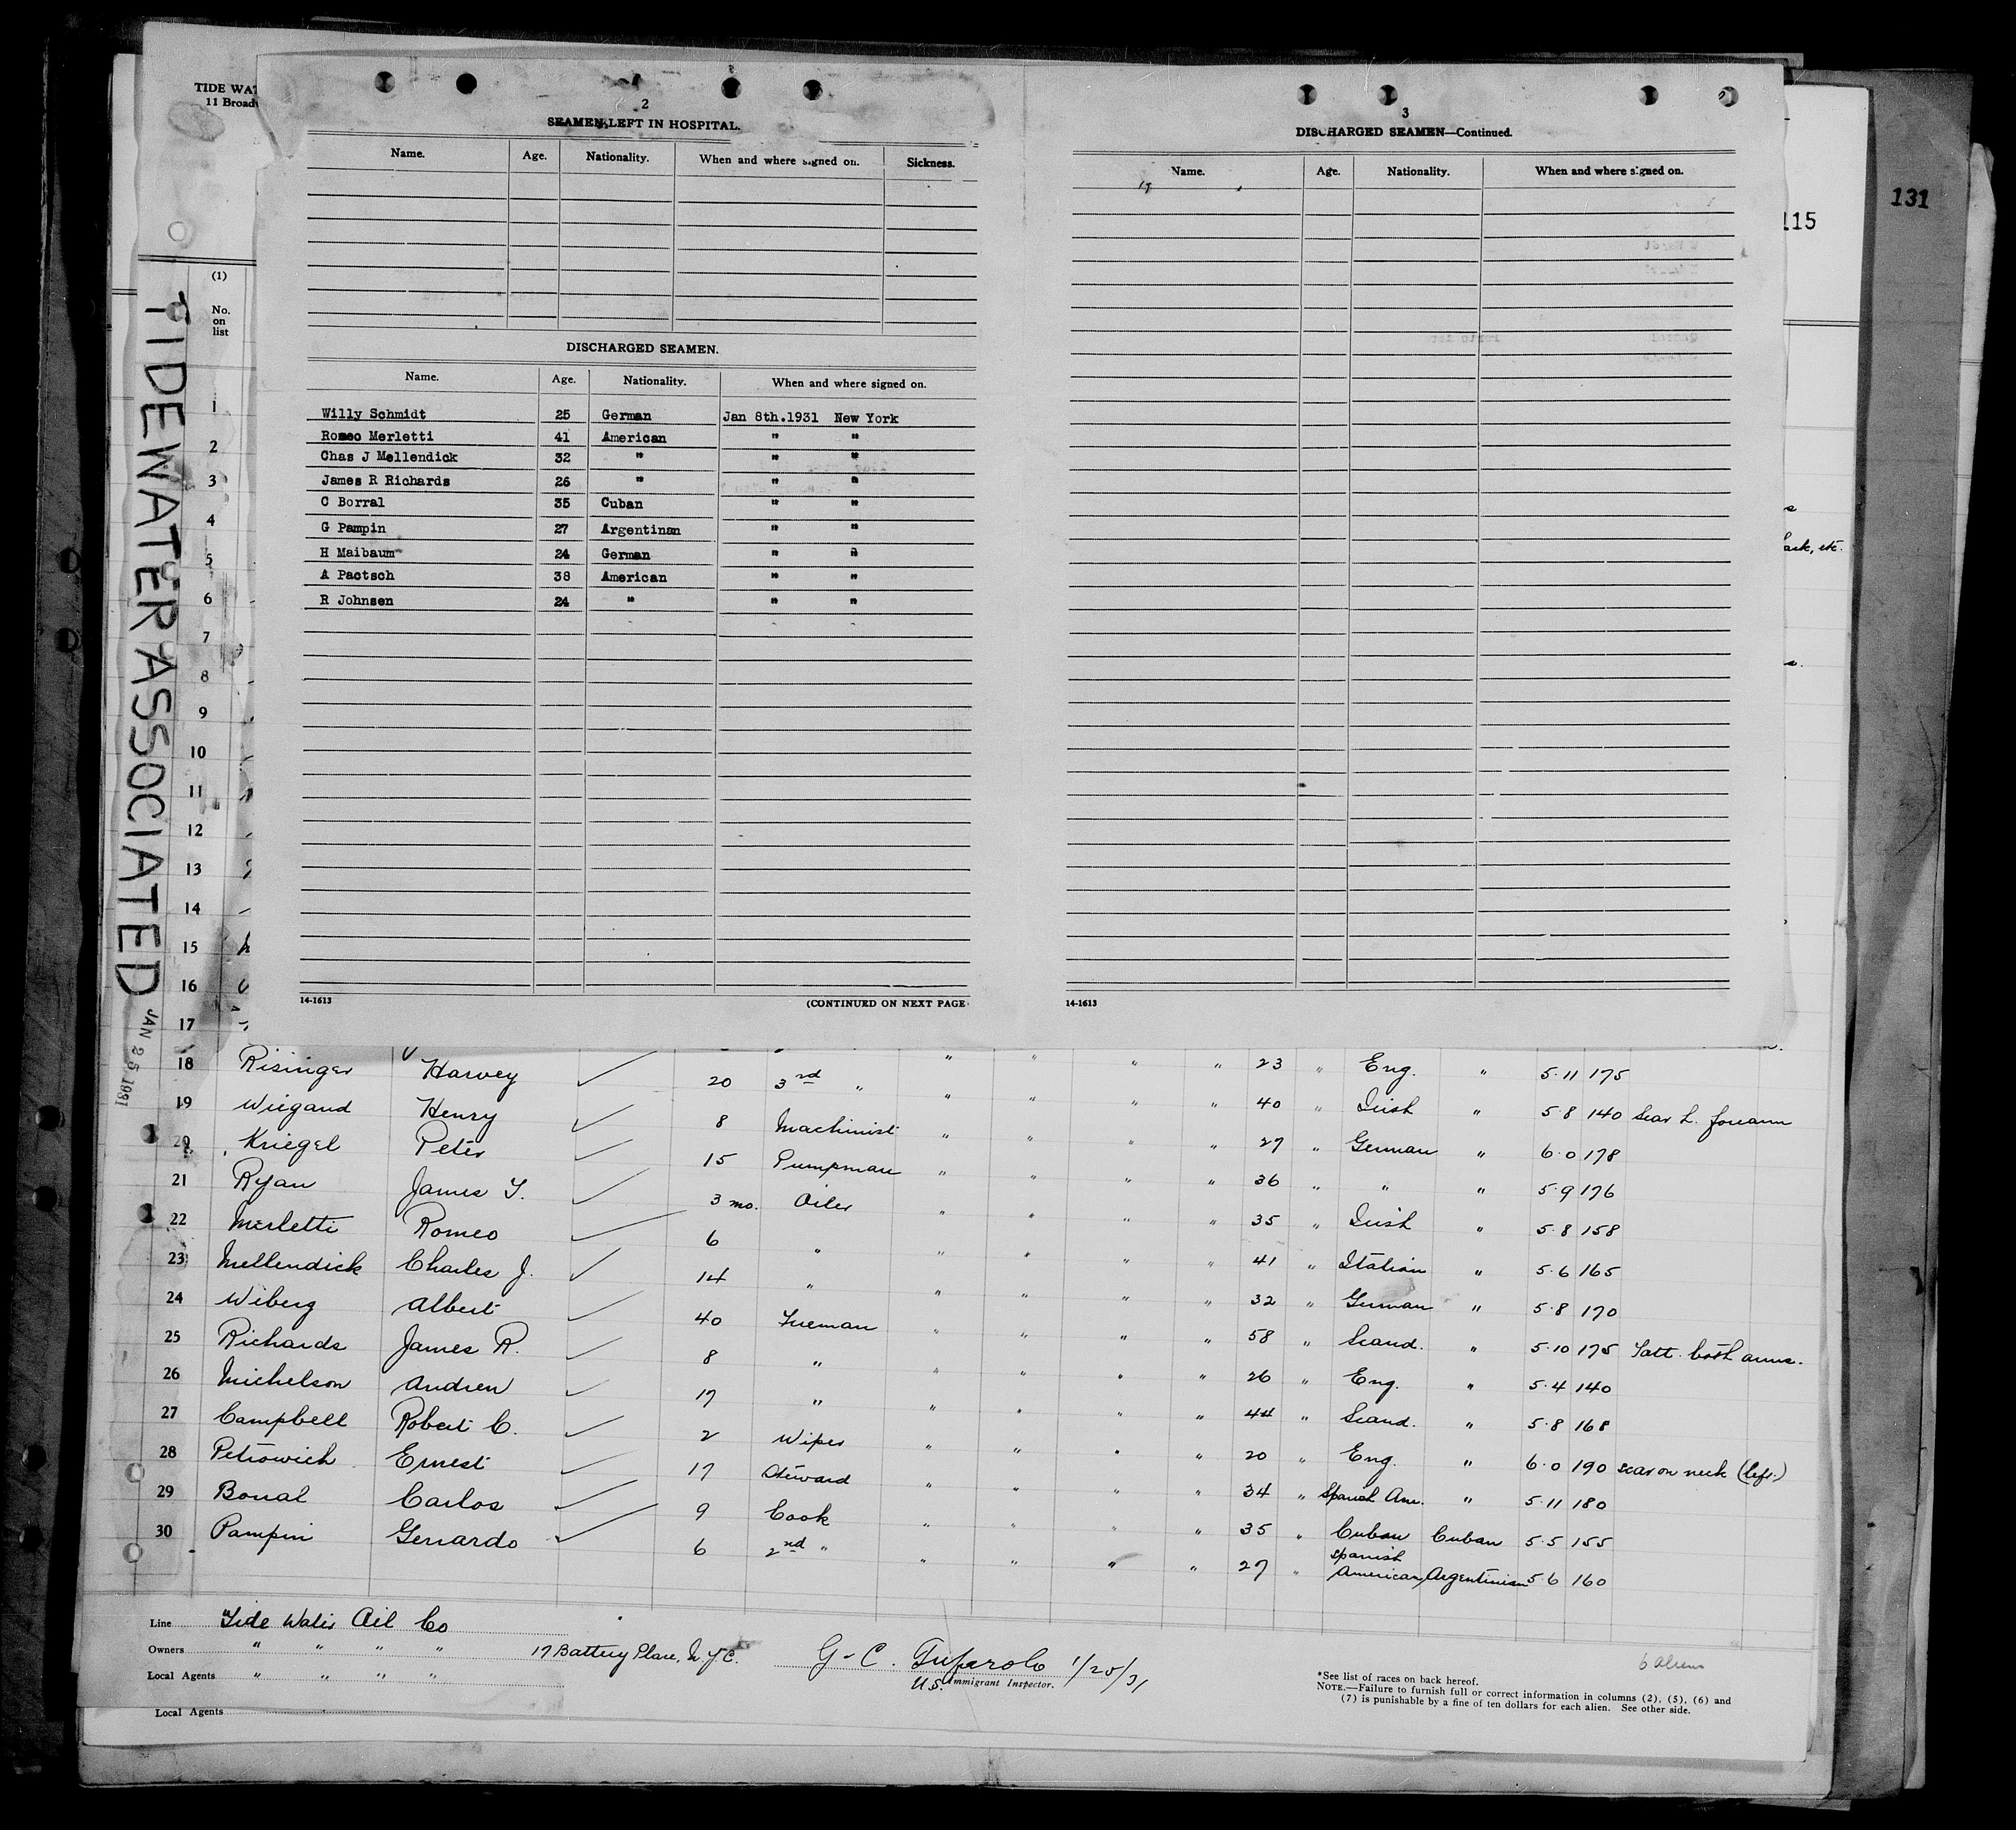 TIDE WAT
11 Broadw
2
SEAMEN LEFT IN HOSPITAL.
Name. Age. Nationality. When and where signed on. Sickness.
DISCHARGED SEAMEN.
Name. Age. Nationality. When and where signed on.
Willy Schmidt 25 German Jan 8th.1931 New York
Romeo Merletti 41 American " "
Chas J Mellendick 32 " " "
James R Richards 26 " " "
C Borral 35 Cuban " "
G Pampin 27 Argentinan " "
H Maibaum 24 German " "
A Paotsch 38 American " "
R Johnsen 24 " " "
14-1613 (CONTINUED ON NEXT PAGE
3
DISCHARGED SEAMEN—Continued.
Name. Age. Nationality. When and where signed on.
14-1613
131
115
ack, etc.
TIDEWATER ASSOCIATED JAN 25 1931
(1)
No.
on
list
1
2
3
4
5
6
7
8
9
10
11
12
13
14
15
16
17
18 Risinger Harvey 20 3rd " " " " " 23 " Eng. " 5 11 175
19 Wiegand Henry 8 Machinist " " " " 40 " Irish " 5 8 140 Scar L. forearm
20 Kriegel Peter 15 Pumpman " " " " 27 " German " 6 0 178
21 Ryan James T. 3 mo. Oiler " " " " 36 " " " 5 9 176
22 Merletti Romeo 6 " " " " " 35 " Irish " 5 8 158
23 Mellendick Charles J. 14 " " " " " 41 " Italian " 5 6 165
24 Wiberg Albert 40 Fireman " " " " 32 " German " 5 8 170
25 Richards James R. 8 " " " " " 58 " Scand. " 5 10 175 Tatt. both arms.
26 Michelson Andrew 17 " " " " " 26 " Eng. " 5 4 140
27 Campbell Robert C. 2 Wiper " " " " 44 " Scand. " 5 8 168
28 Petrowich Ernest 17 Steward " " " " 20 " Eng. " 6 0 190 scar on neck (left.)
29 Borral Carlos 9 Cook " " " " 34 " Spanish Am. " 5 11 180
30 Pampin Gerardo 6 2nd " " " " " 35 " Cuban Cuban 5 5 155
" " " " 27 " Spanish American Argentinian 5 6 160
Line Tide Water Oil Co
Owners " " " " 17 Battery Place, N.Y.C.
Local Agents " " " "
Local Agents
G. C. 1/25/31
U.S. Immigrant Inspector.
6 aliens
*See list of races on back hereof.
NOTE.—Failure to furnish full or correct information in columns (2), (5), (6) and
(7) is punishable by a fine of ten dollars for each alien. See other side.